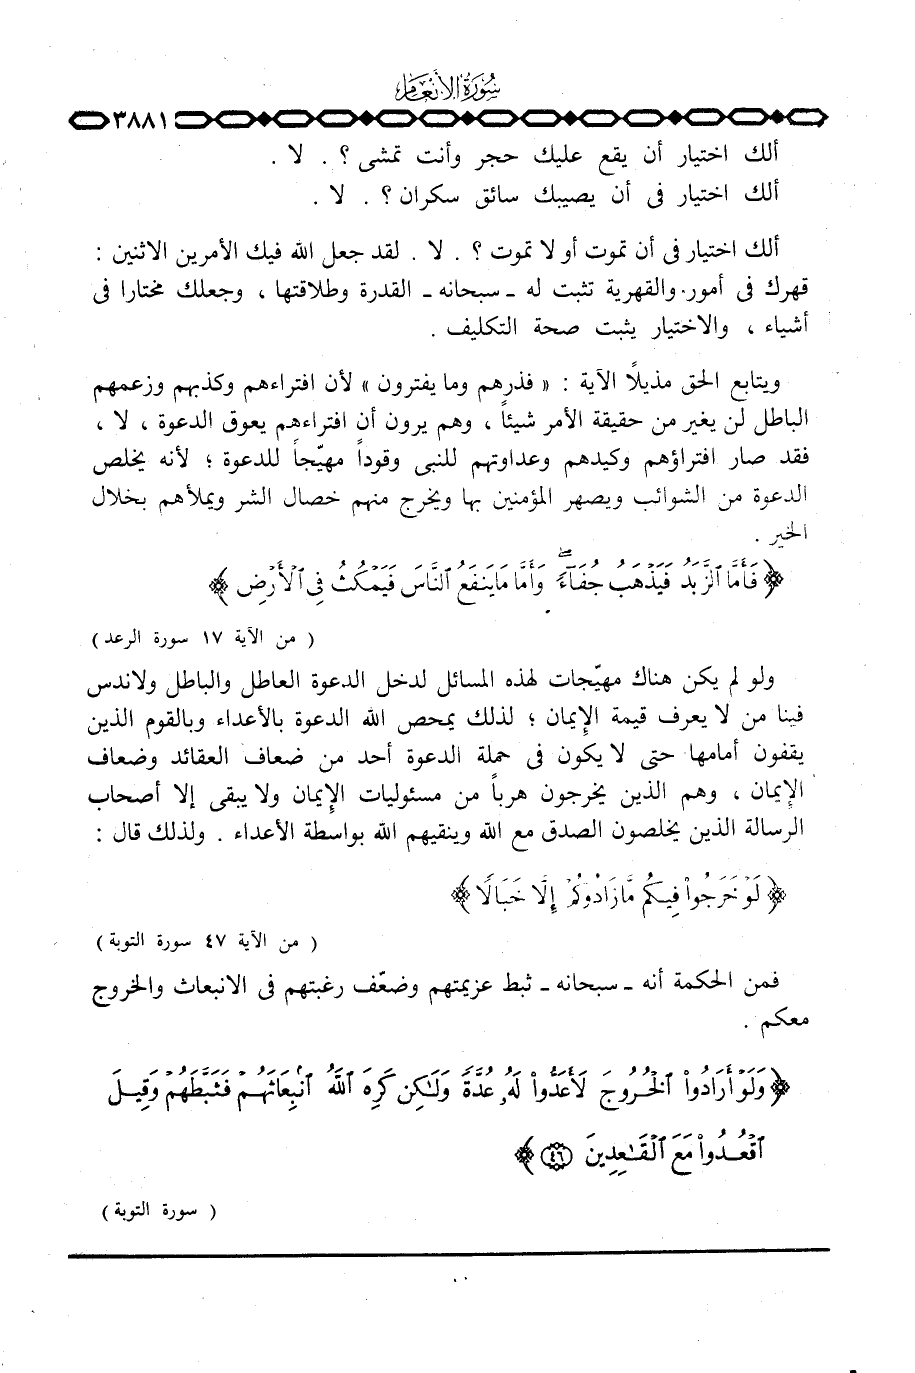 سورة الأنعام
٣٨٨١
ألك اختيار أن يقع عليك حجر وأنت تمشى ؟ . لا .
ألك اختيار فى أن يصيبك سائق سكران ؟ . لا .
ألك اختيار فى أن تموت أو لا تموت ؟ . لا . لقد جعل الله فيك الأمرين الاثنين :
قهرك فى أمور. والقهرية تثبت له ـ سبحانه ـ القدرة وطلاقتها ، وجعلك مختارا فى
أشياء ، والاختيار يثبت صحة التكليف .
ويتابع الحق مذيلًا الآية : « فذرهم وما يفترون » لأن افتراءهم وكذبهم وزعمهم
الباطل لن يغير من حقيقة الأمر شيئاً ، وهم يرون أن افتراءهم يعوق الدعوة ، لا ،
فقد صار افتراؤهم وكيدهم وعداوتهم للنبى وقوداً مهيّجاً للدعوة ؛ لأنه يخلص
الدعوة من الشوائب ويصهر المؤمنين بها ويخرج منهم خصال الشر ويملأهم بخلال
الخير .
﴿ فَأَمَّا ٱلزَّبَدُ فَيَذْهَبُ جُفَآءً ۖ وَأَمَّا مَا يَنفَعُ ٱلنَّاسَ فَيَمْكُثُ فِى ٱلْأَرْضِ ﴾
( من الآية ١٧ سورة الرعد )
ولو لم يكن هناك مهيّجات لهذه المسائل لدخل الدعوة العاطل والباطل ولاندس
فينا من لا يعرف قيمة الإيمان ؛ لذلك يمحص الله الدعوة بالأعداء وبالقوم الذين
يقفون أمامها حتى لا يكون فى حملة الدعوة أحد من ضعاف العقائد وضعاف
الإيمان ، وهم الذين يخرجون هرباً من مسئوليات الإيمان ولا يبقى إلا أصحاب
الرسالة الذين يخلصون الصدق مع الله وينقيهم الله بواسطة الأعداء . ولذلك قال :
﴿ لَوْ خَرَجُوا۟ فِيكُم مَّا زَادُوكُمْ إِلَّا خَبَالًا ﴾
( من الآية ٤٧ سورة التوبة )
فمن الحكمة أنه ـ سبحانه ـ ثبط عزيمتهم وضعّف رغبتهم فى الانبعاث والخروج
معكم .
﴿ وَلَوْ أَرَادُوا۟ ٱلْخُرُوجَ لَأَعَدُّوا۟ لَهُۥ عُدَّةً وَلَـٰكِن كَرِهَ ٱللَّهُ ٱنۢبِعَاثَهُمْ فَثَبَّطَهُمْ وَقِيلَ
ٱقْعُدُوا۟ مَعَ ٱلْقَـٰعِدِينَ ٤٦ ﴾
( سورة التوبة )